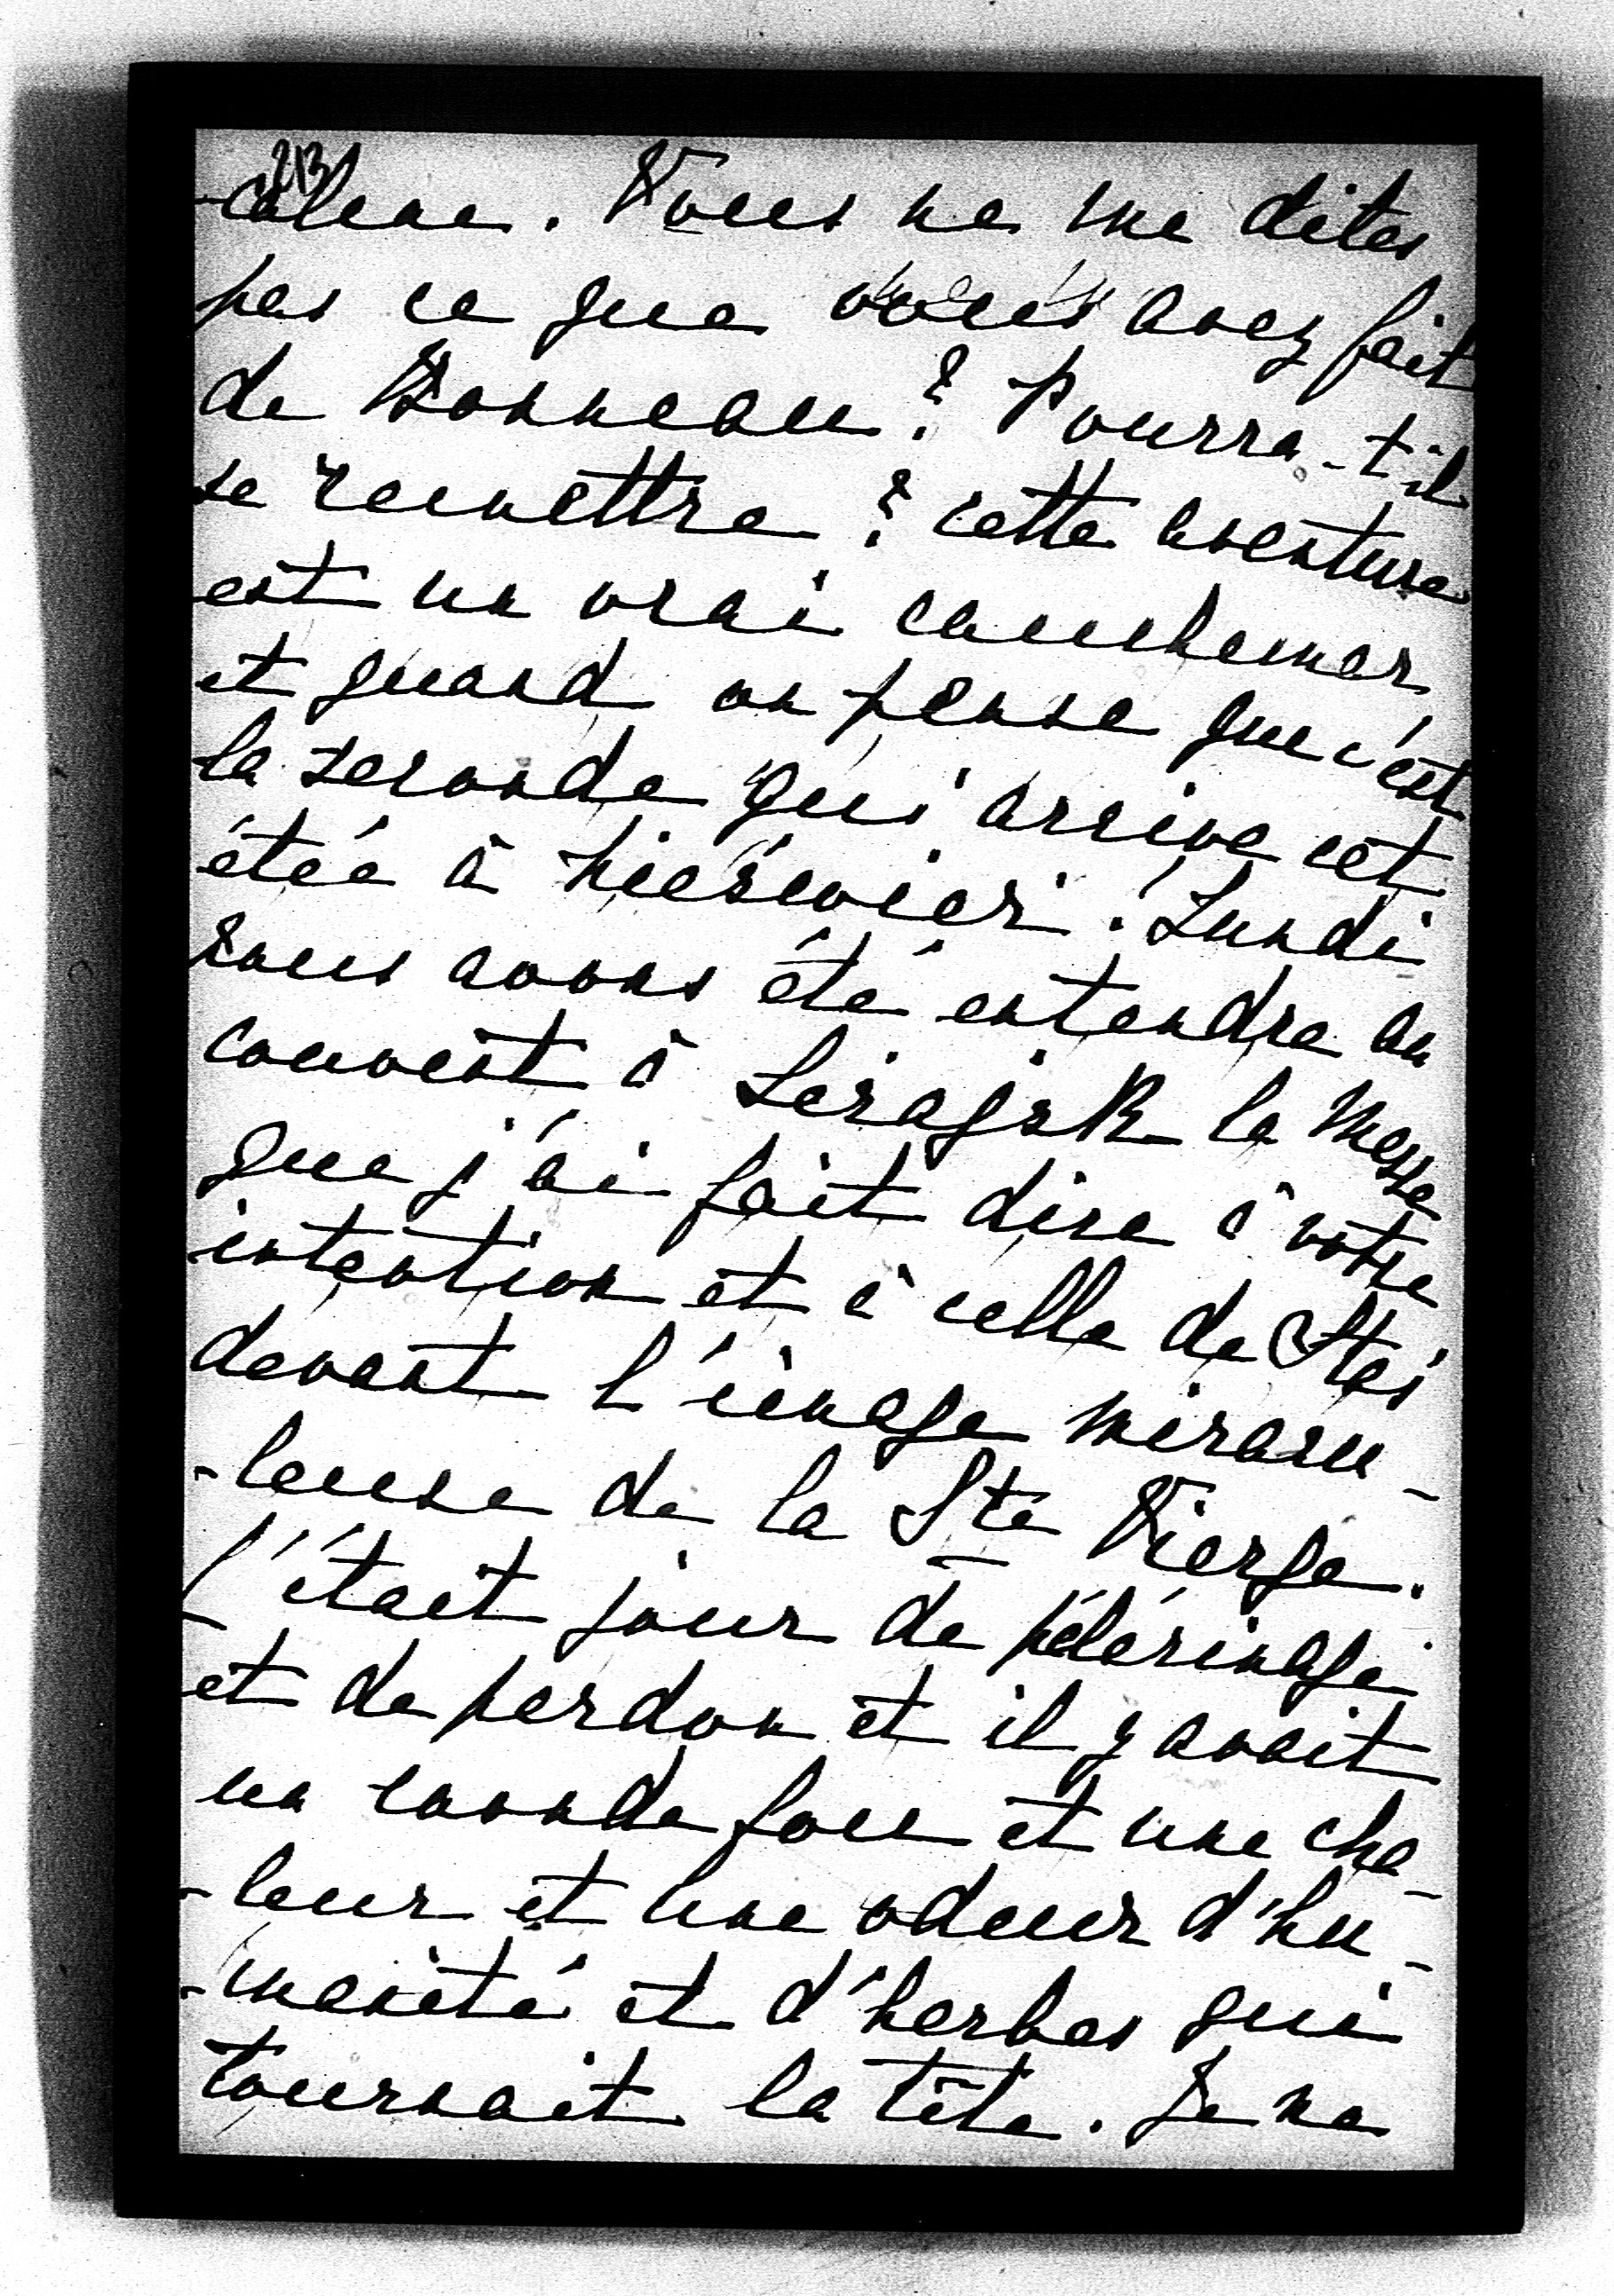 213
-calme. Vous ne me dites
pas ce que vous avez fait
de Bonneau? Pourra-t-il
se remettre? cette aventure
est un vrai cauchemar
et quand on pense que c'est
la seconde qui arrive cet
étée à Nieświeri. Lundi
nous avons été entendre au
couvent à Leżajsk la Messe
que j'ai fait dire à votre
intention et à celle de
devant l'image miracu-
-leuse de la Ste Vierge.
C'était jour de pélérinage
et de pardon et il y avait
un monde fou et une cha-
-leur et une odeur d'hu-
-manité et d'herbes qui
tournait la tête. Je ne